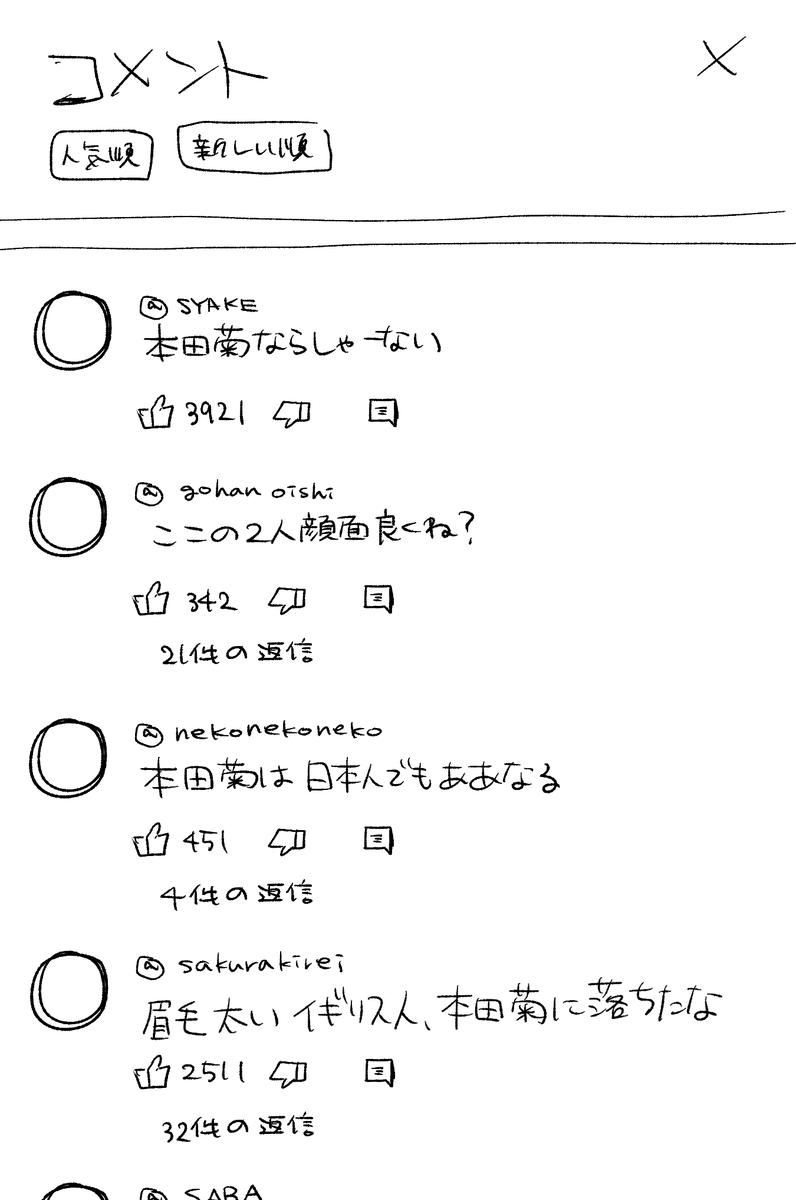 コメント
×
人気順 新しい順
@ SYAKE
本田菊ならしゃーない
3921
@ gohan oishi
ここの2人顔面良くね?
342
21件の返信
@ nekonekoneko
本田菊は日本人でもああなる
451
4件の返信
@ sakurakirei
眉毛太いイギリス人、本田菊に落ちたな
2511
32件の返信
@ SABA